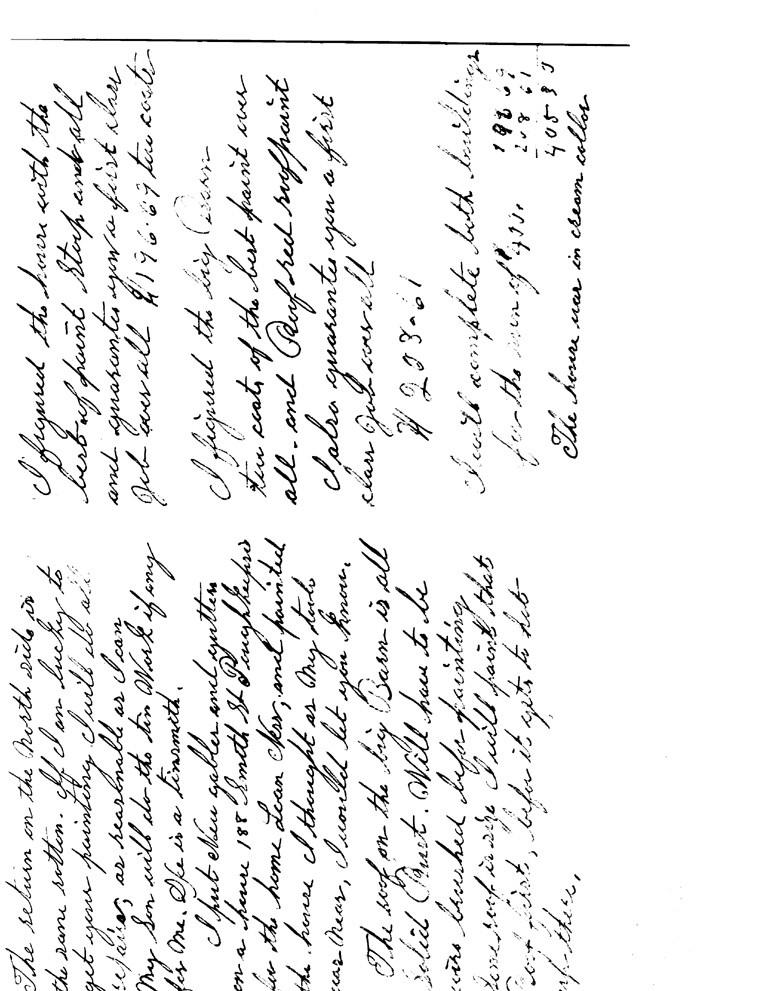 The return on the North side is
the same rotten. If I am lucky to
get your painting I will do all
repairs, as reasnable as I can
My Son will do the tin Work if any
for Me. He is a tinsmith.
I put New gables and gutters
on a house 188 Smith St Poughkeepsie
for the home Loan Ness, and painted
the house I thought as My tools
was near, I would let you know.
The roof on the big Barn is all
Solid Rust. Will have to be
wire brushed before painting,
Some roof is size I will paint that
roof first, before it gets to hot
up there,
I figured the house with the
best of paint Stoop and all
and guarantee you a first class
Job over all $196.69 two coats
I figured the big Barn
two coats of the best paint over
all. and Roof red roofpaint
I also guarantee you a first
class Job over all
$208.61
I will complete both buildings
for the sum of
196 69
208 61
405 30
The house was in cream collor